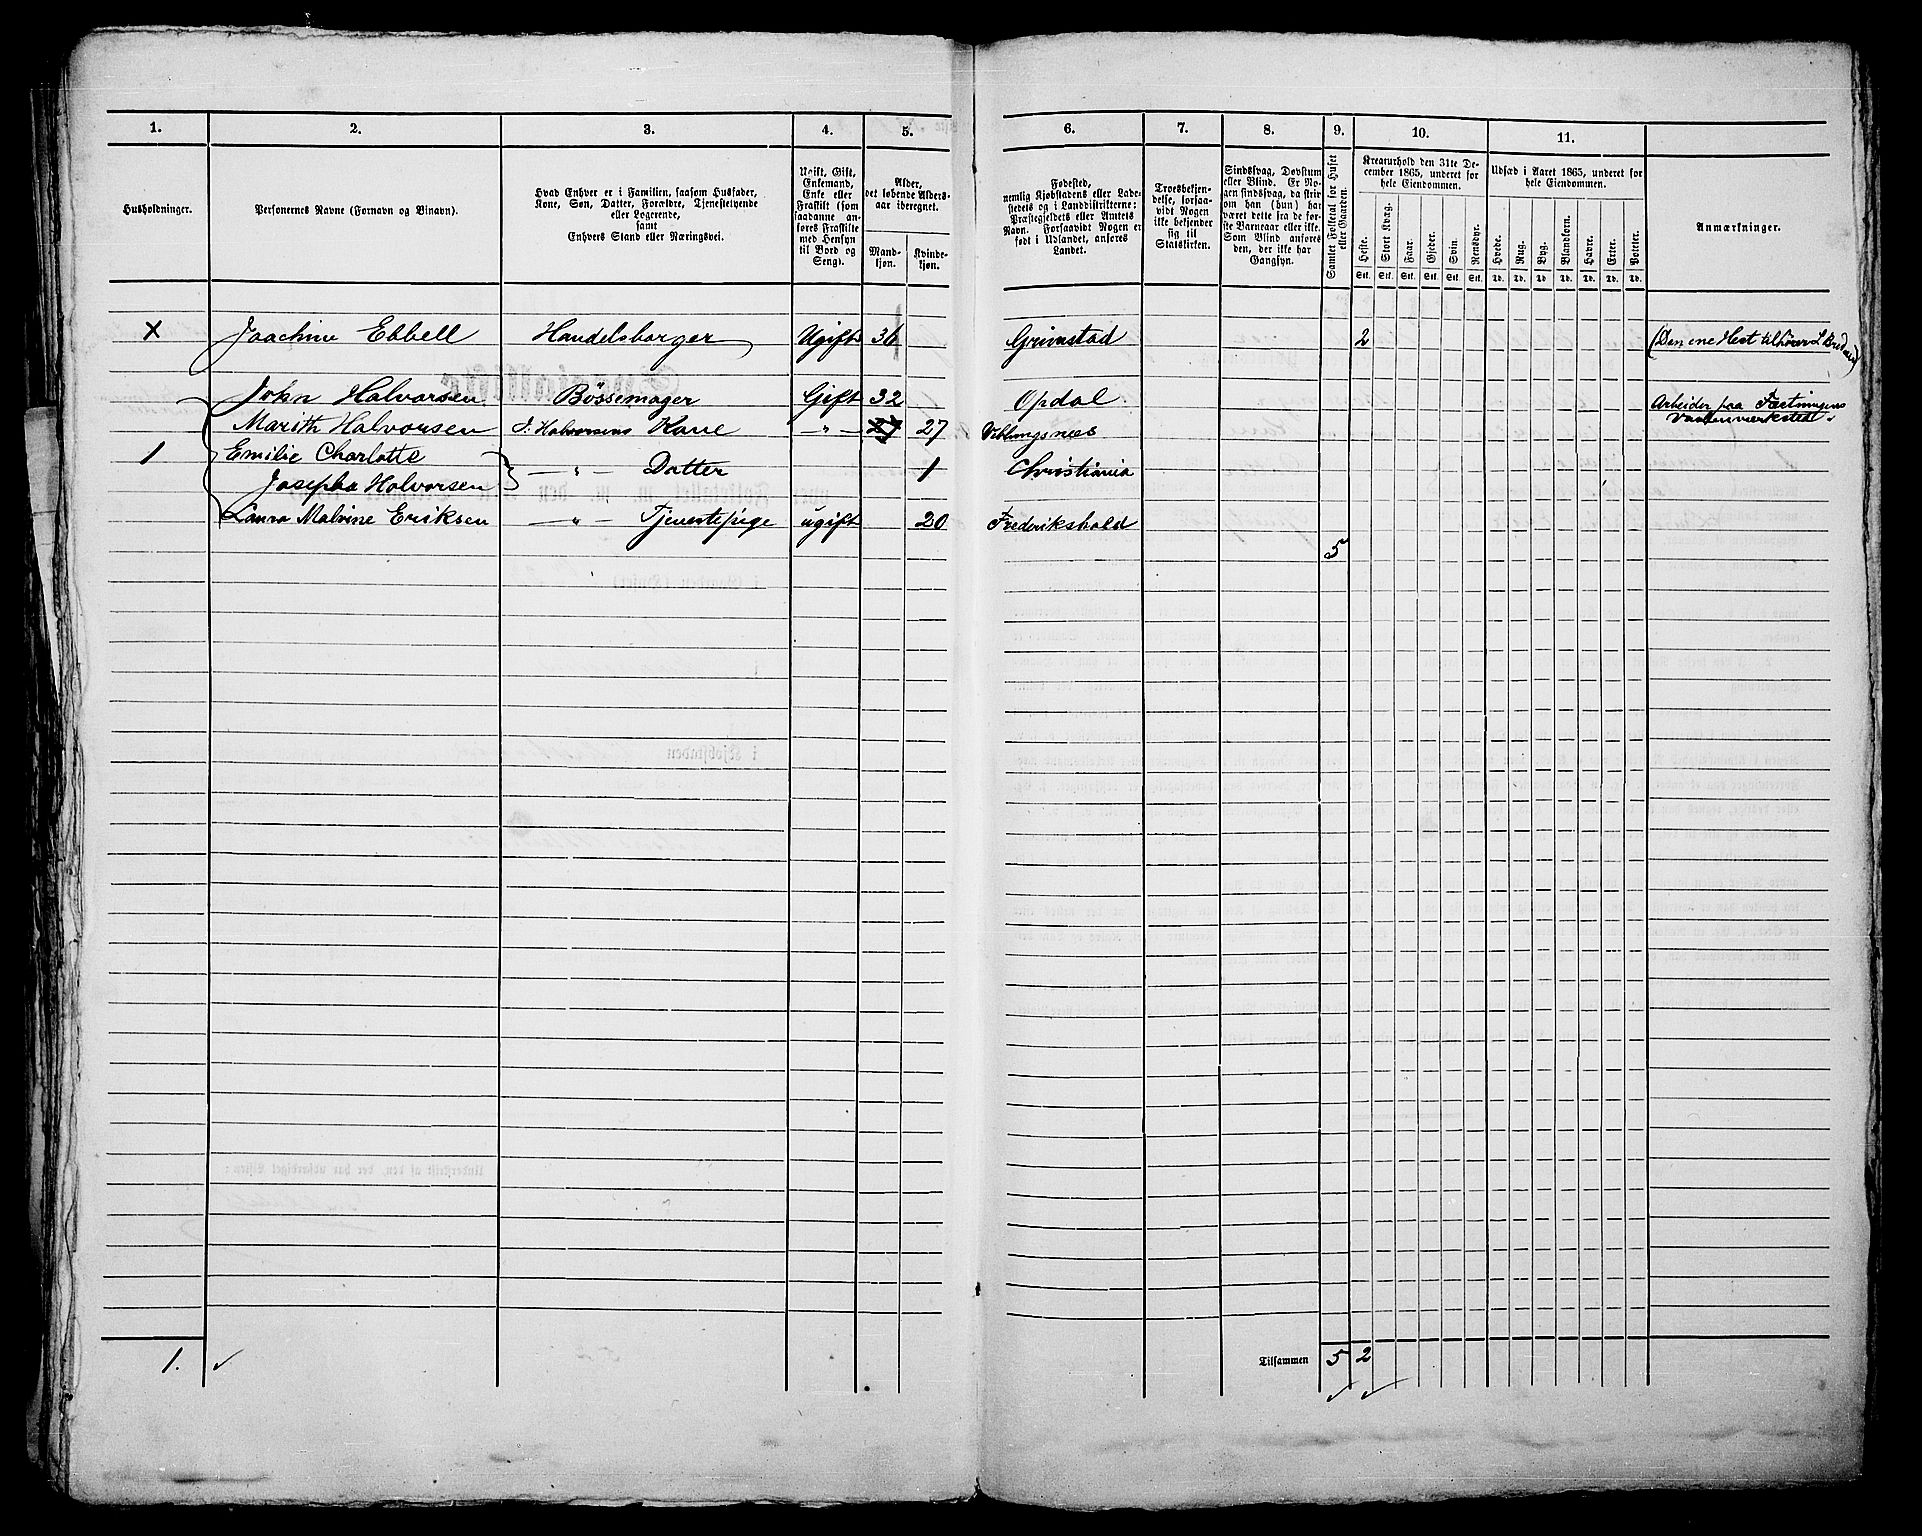 1. 2. 3. 4. 5. 6. 7. 8. 9. 10. 11.
Husholdninger.
Personernes Navne (Fornavn og Binavn).
Hvad Enhver er i Familien, saasom Husfader,
Kone, Søn, Datter, Forældre, Tjenestetyende
eller Logerende,
samt
Enhvers Stand eller Næringsvei.
Ugift, Gift,
Enkemand,
Enke eller
Fraskilt (som
saadanne an-
føres Fraskilte
med Hensyn
til Bord og
Seng).
Alder,
det løbende Alders-
aar iberegnet.
Mand-
kjøn.
Kvinde-
kjøn.
Fødested,
nemlig Kjøbstadens eller Lade-
stedets og i Landdistrikterne:
Præstegjeldets eller Amtets
Navn. Forsaavidt Nogen er
født i Udlandet, anføres
Landet.
Troesbekjen-
delse, forsaa-
vidt Nogen
ikke bekjender
sig til
Statskirken.
Sindssvag, Døvstum
eller Blind. Er No-
gen sindssvag, da skriv
om han (hun) har
været dette fra de før-
ste Barneaar eller ikke.
Som Blind anføres
den, der ikke har
Gangsyn.
Samlet Folketal for Huset
eller Gaarden.
Kreaturhold den 31te De-
cember 1865, underet for
hele Eiendommen.
Heste. Stort Kvæg. Faar. Gjeder. Svin. Rensdyr.
Stk. Stk. Stk. Stk. Stk. Stk.
Udsæd i Aaret 1865, underet for
hele Eiendommen.
Hvede. Rug. Byg. Blandkorn. Havre. Erter. Poteter.
Td. Td. Td. Td. Td. Td. Td.
Anmærkninger.
X Joachim Ebbell Handelsborger Ugift 36 Grimstad 2 (Den ene Hest tilhører L Bredrup)
John Halvorsen Bøssemager Gift 32 Opdal Arbeider paa Fæstningens
Vaabenværksted
Marith Halvorsen J. Halvorsens Kone — " — 27 27 Veblungsnæs
1 Emilie Charlotte
Josepha Halvorsen — " — Datter 1 Christiania
Laura Malvine Eriksen — " — Tjenestepige ugift 20 Frederikshald
5
1. ✓ Tilsammen 5 2
✓ ✓